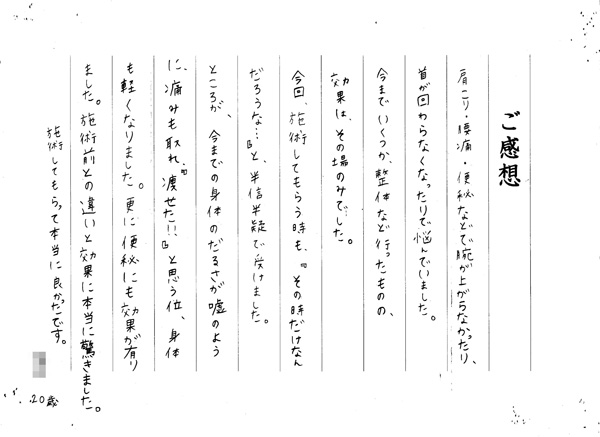 ご感想
肩こり・腰痛・便秘などで腕が上がらなかったり、
首が回わらなくなったりで悩んでいました。
今までいくつか、整体など行ったものの、
効果は、その場のみでした。
今回、施術してもらう時も、『その時だけなん
だろうな…』と、半信半疑で受けました。
ところが、今までの身体のだるさが嘘のよう
に、痛みも取れ、『痩せた!!』と思う位、身体
も軽くなりました。更に便秘にも効果が有り
ました。施術前との違いと効果に本当に驚きました。
施術してもらって本当に良かったです。
20歳